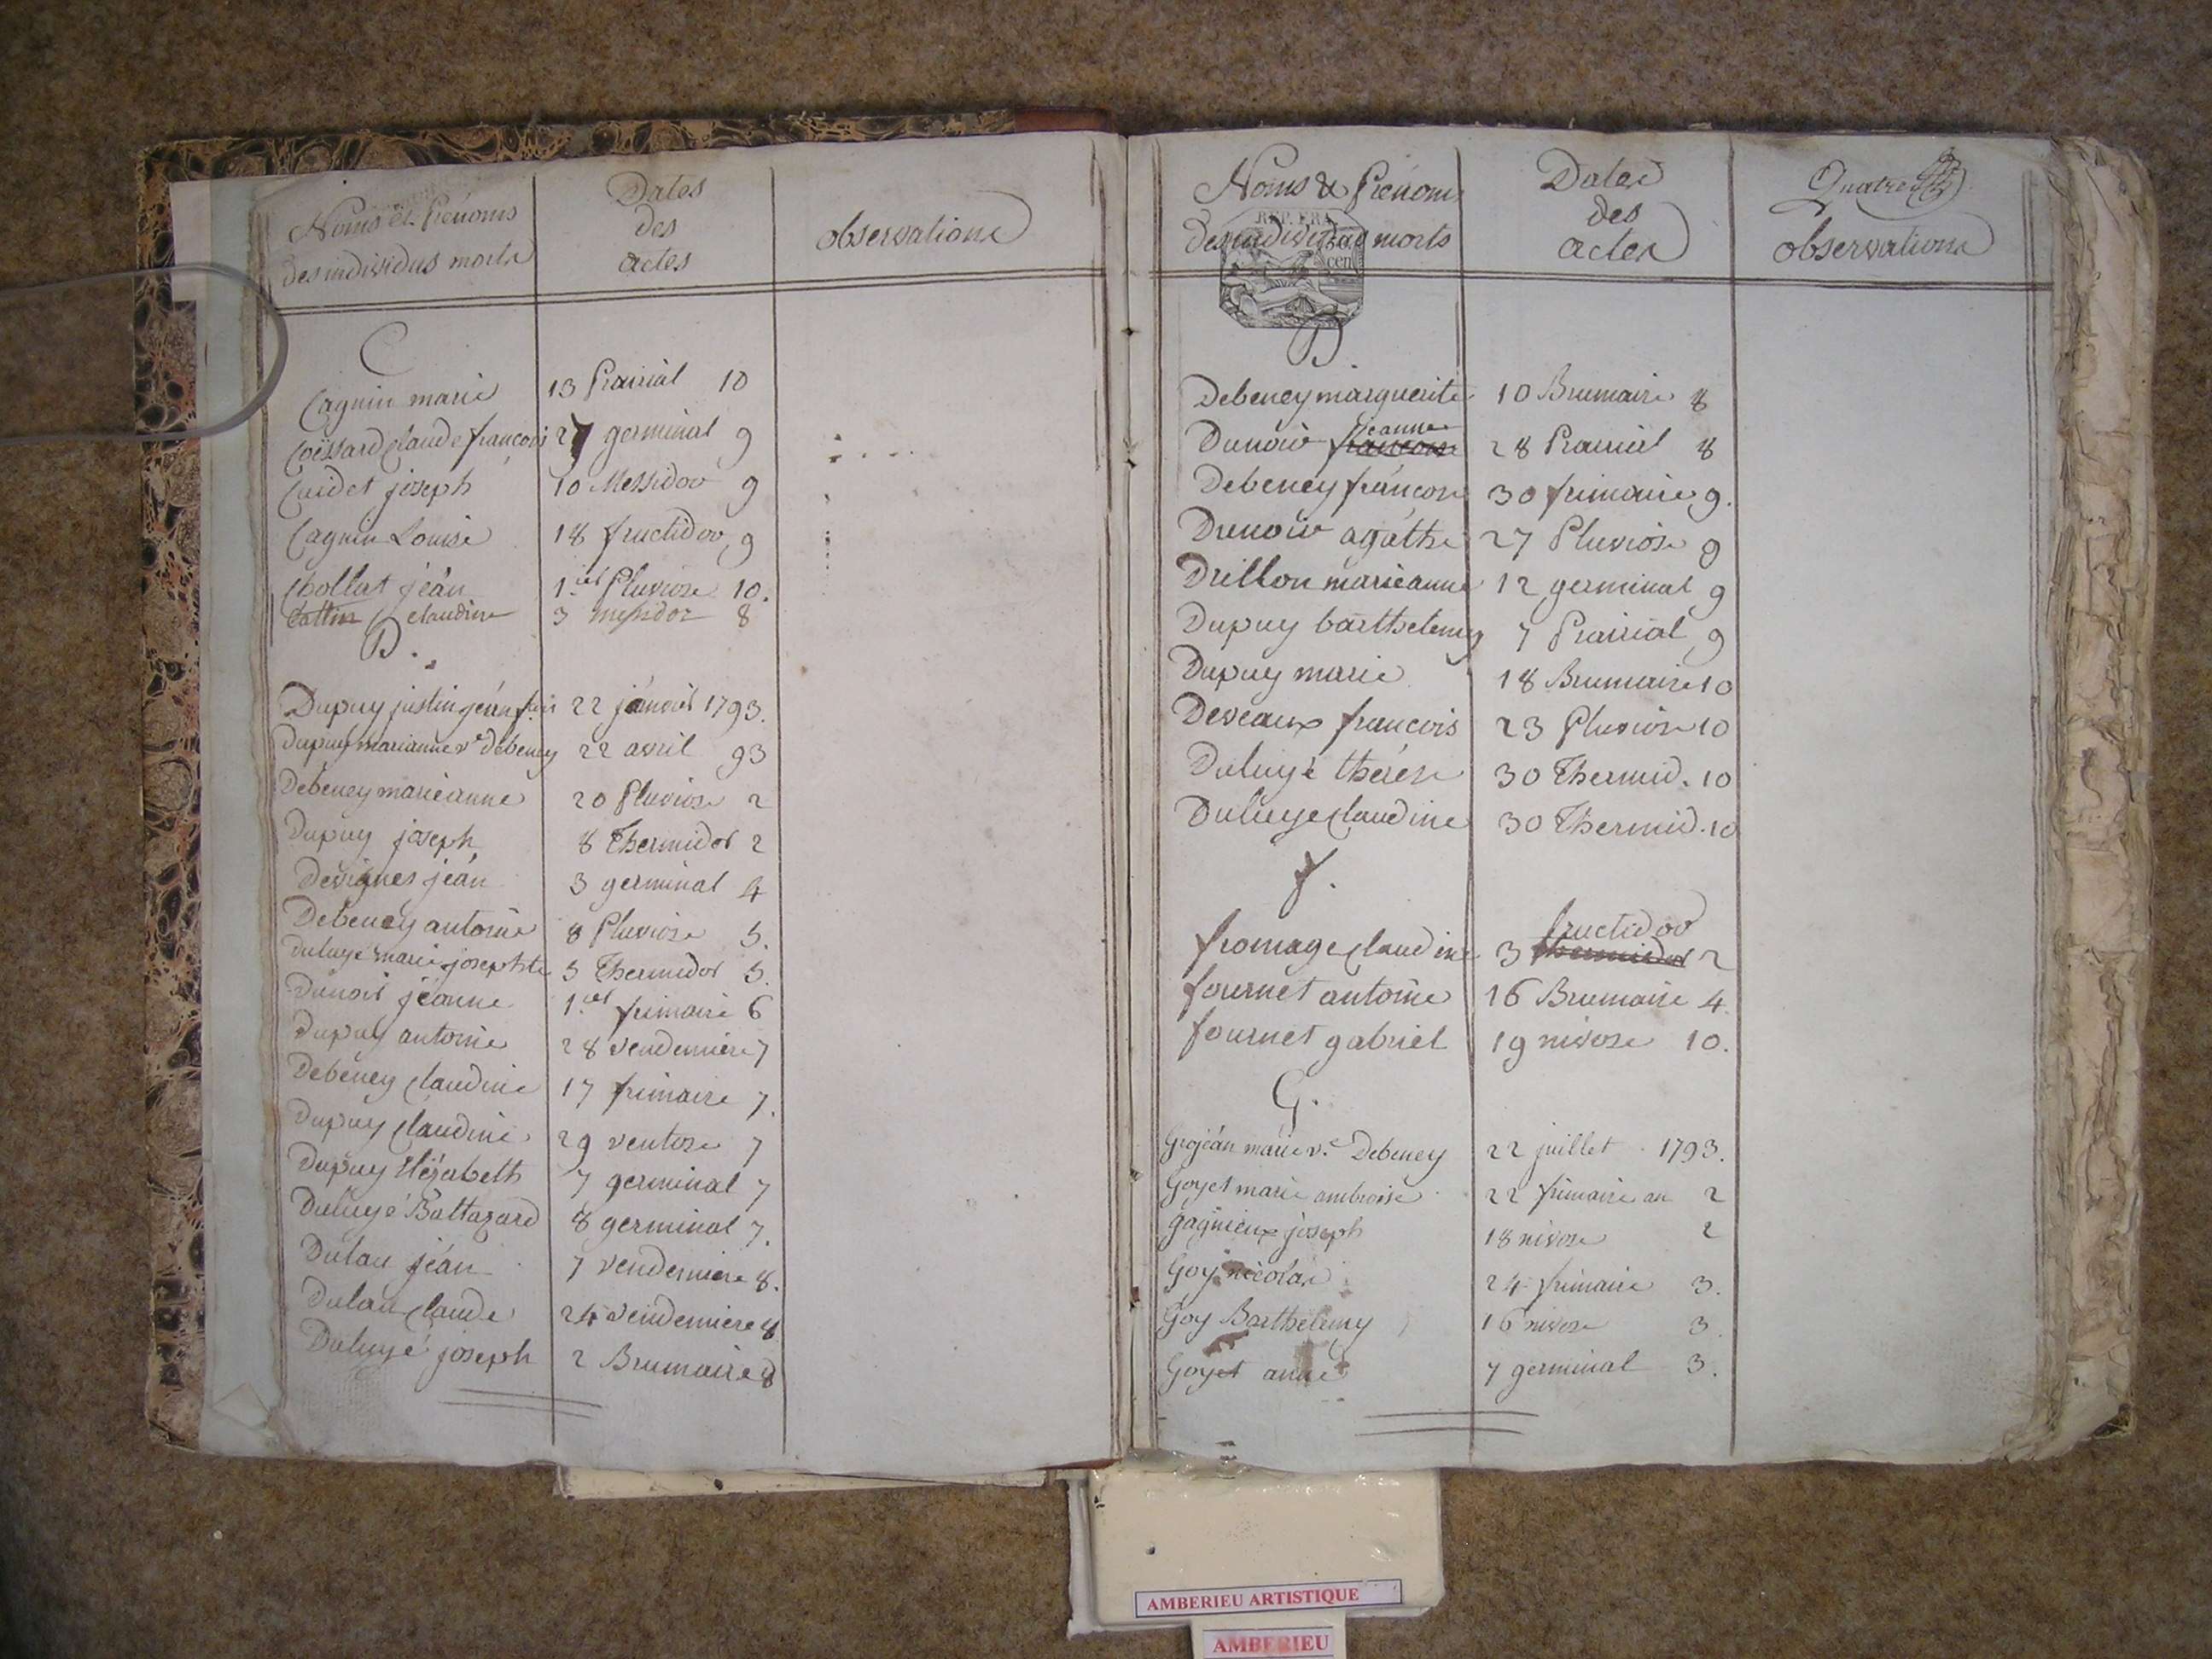 Noms et Prénoms
des individus morts
Dates
des
actes
observations
C
Cagnin marie 13 Prairial 10
Coëssard Claude françois 27 germinal 9
Cuidet joseph 10 Messidor 9
Cagnin Louise 18 fructidor 9
Chollat jéan 1.er Pluviose 10.
Cattin claudine 3 messidor 8
D.
Dupuy justin jéan 22 janvier 1793.
Dupuy marianne v.e Debeney 22 avril 93
Debeney marieanne 20 Pluviose 2
Dupuy joseph 8 Thermidor 2
Devignes jéan 3 germinal 4
Debeney antoine 8 Pluviose 5.
Duluyé marie josephte 5 Thermidor 5.
Dunoir jéanne 1.er frimaire 6
Dupuy antoine 28 vendemiere 7
Debeney Claudine 17 frimaire 7.
Dupuy Claudine 29 ventose 7
Dupuy Elizabeth 7 germinal 7
Duluyé Baltazard 8 germinal 7.
Dulau jéan 7 vendemiere 8.
Dulau Claude 24 vendemiere 8
Duluyé joseph 2 Brumaire 8
Noms & Prénoms
des individus morts
REP. FRA
50
cen
Dates
des
actes
Quatre
observations
D.
Debeney marguerite 10 Brumaire 8
jeanne
Dunoir francoise 28 Prairial 8
Debeney françoise 30 frimaire 9.
Drenoir agathe 27 Pluviose 9
Drillon marieanne 12 germinal 9
Dupuy barthelemy 7 Prairial 9
Dupuy marie 18 Brumaire 10
Deveaux francois 23 Pluviose 10
Duluyé therése 30 Thermid. 10
Duluye Claudine 30 Thermid. 10
f.
fructidor
fromage Claudine 3 thermidor 2
fournet antoine 16 Brumaire 4.
fournet gabriel 19 nivose 10.
G.
Grojéan marie v.e Debeney 22 juillet 1793.
Goyet marie ambroise 22 frimaire an 2
gagnieux joseph 18 nivose 2
Goy nicolas 24 frimaire 3.
Goy Barthelemy 16 nivose 3.
Goyet anne 7 germinal 3.
AMBERIEU ARTISTIQUE
AMBERIEU